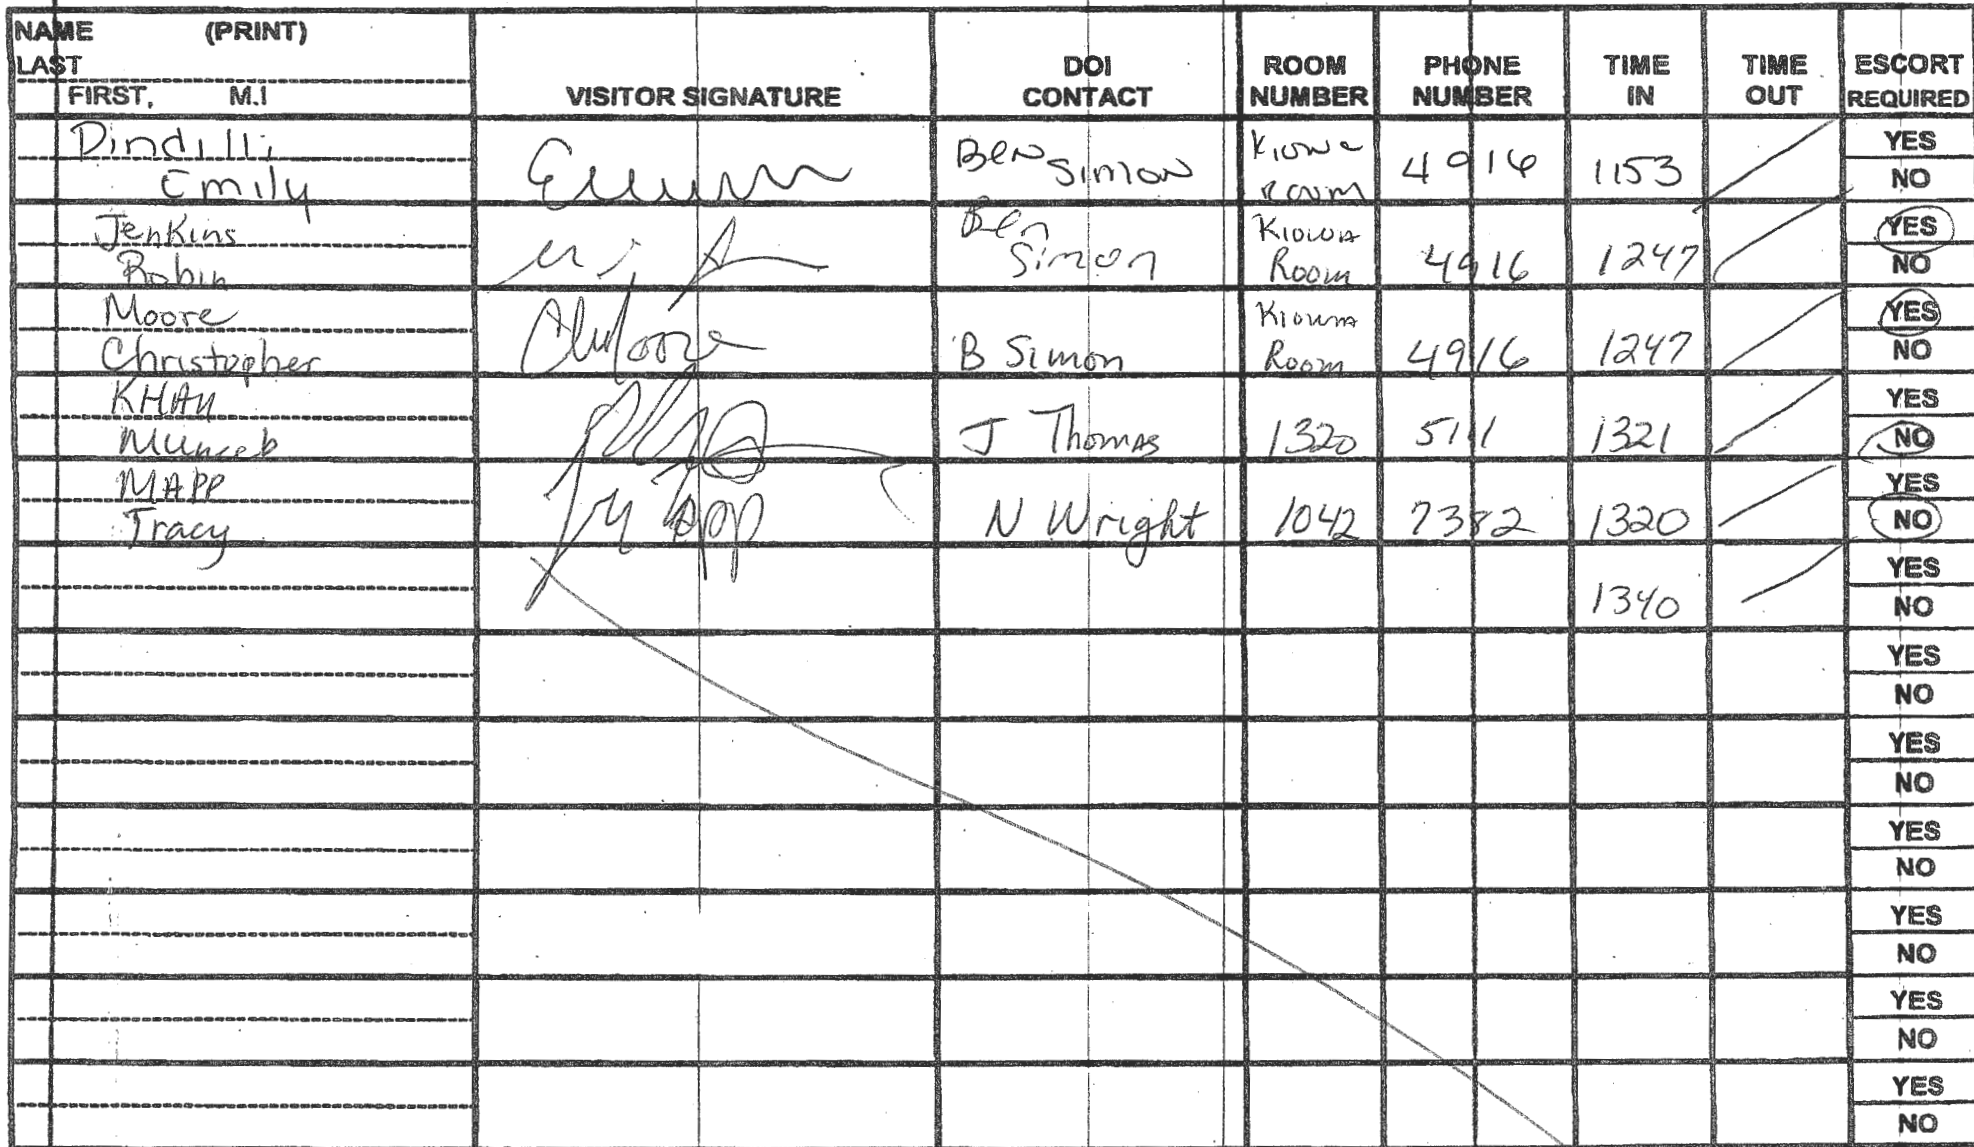 NAME (PRINT)
LAST
FIRST, M.I
VISITOR SIGNATURE
DOI
CONTACT
ROOM
NUMBER
PHONE
NUMBER
TIME
IN
TIME
OUT
ESCORT
REQUIRED
Emily
Ben Simon
Room
4916
1153
YES
NO
Jenkins
Robin
Ben
Simon
Kiowa
Room
4916
1247
YES
NO
Moore
Christopher
B Simon
Kiowa
Room
4916
1247
YES
NO
KHAN
J Thomas
1320
5111
1321
YES
NO
MAPP
Tracy
N Wright
1042
7382
1320
YES
NO
1340
YES
NO
YES
NO
YES
NO
YES
NO
YES
NO
YES
NO
YES
NO